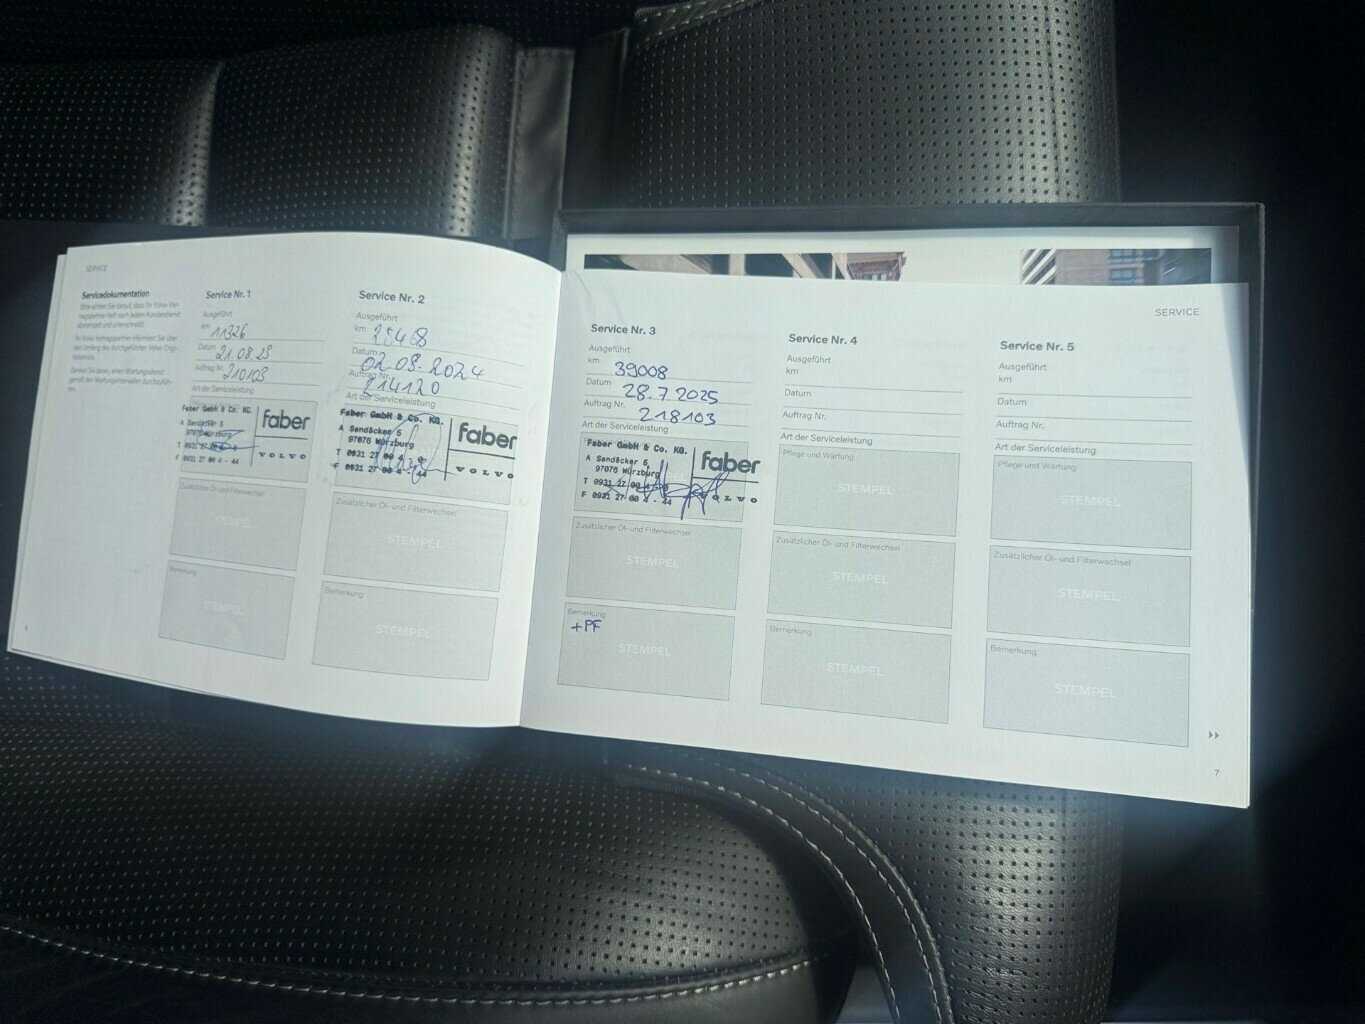 SERVICE
Servicedokumentation
Service Nr. 1
Ausgeführt
km 11326
Datum 21.08.23
Auftrag Nr. 210103
Art der Serviceleistung
Faber GmbH & Co. KG.
A Sendäcker 5
97076 Würzburg
T 0931 27 00 4 - 0
F 0931 27 00 4 - 44
faber
VOLVO
Zusätzlicher Öl- und Filterwechsel
STEMPEL
Bemerkung
STEMPEL
Service Nr. 2
Ausgeführt
km 25468
Datum 02.09.2024
Auftrag Nr. 214120
Art der Serviceleistung
Faber GmbH & Co. KG.
A Sendäcker 5
97076 Würzburg
T 0931 27 00 4 - 0
F 0931 27 00 4 - 44
faber
VOLVO
Zusätzlicher Öl- und Filterwechsel
STEMPEL
Bemerkung
STEMPEL
SERVICE
Service Nr. 3
Ausgeführt
km 39008
Datum 28.7.2025
Auftrag Nr. 218103
Art der Serviceleistung
Faber GmbH & Co. KG.
A Sendäcker 5
97076 Würzburg
T 0931 27 00 4 - 0
F 0931 27 00 4 - 44
faber
VOLVO
Zusätzlicher Öl- und Filterwechsel
STEMPEL
Bemerkung
+PF
STEMPEL
Service Nr. 4
Ausgeführt
km
Datum
Auftrag Nr.
Art der Serviceleistung
Pflege und Wartung
STEMPEL
Zusätzlicher Öl- und Filterwechsel
STEMPEL
Bemerkung
STEMPEL
Service Nr. 5
Ausgeführt
km
Datum
Auftrag Nr.
Art der Serviceleistung
Pflege und Wartung
STEMPEL
Zusätzlicher Öl- und Filterwechsel
STEMPEL
Bemerkung
STEMPEL
7